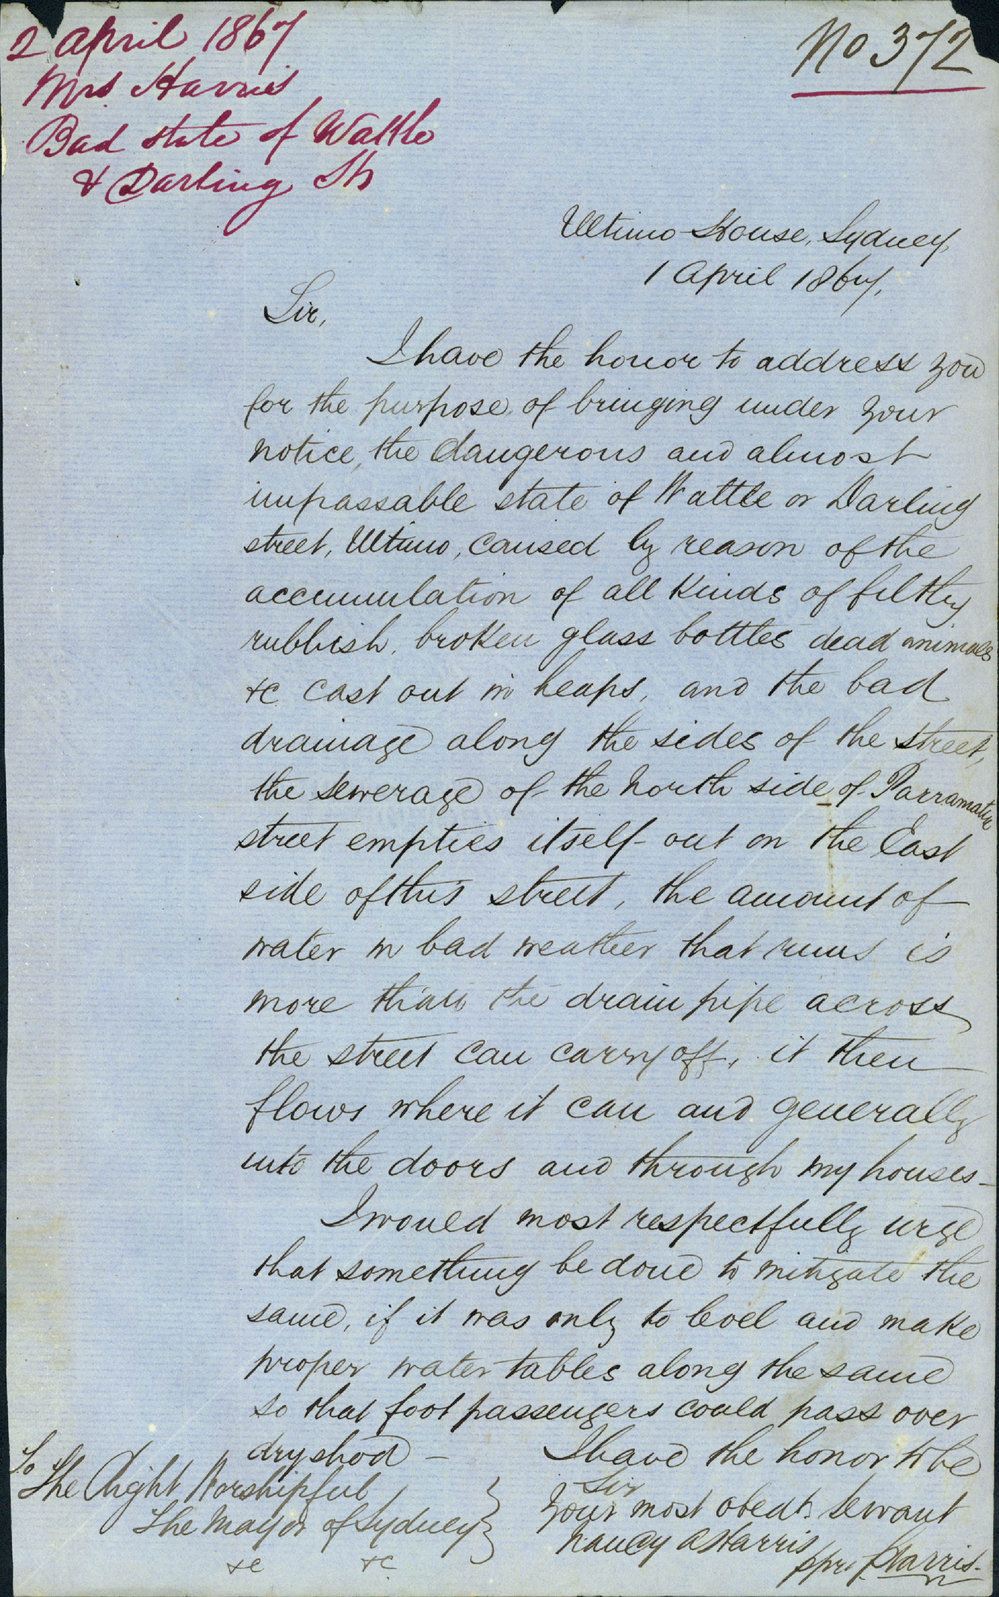 2 April 1867
Mrs Harris
Bad state of Wattle
& Darling Sts
No 372
Ultimo House, Sydney,
1 April 1867,
Sir,
I have the honor to address you
for the purpose of bringing under your
notice, the dangerous and almost
impassable state of Wattle or Darling
street, Ultimo, caused by reason of the
accumulation of all kinds of filthy
rubbish, broken glass bottles dead animals
&c cast out in heaps, and the bad
drainage along the sides of the street,
the sewerage of the North side of Parramatta
street empties itself out on the East
side of this street, the amount of
water in bad weather that runs is
more than the drain pipe across
the street can carry off, it then
flows where it can and generally
into the doors and through my houses-
I would most respectfully urge
that something be done to mitigate the
same, if it was only to level and make
proper water tables along the same
so that foot passengers could pass over
dry shod -
I have the honor to be
Sir
Your most obedt. Servant
Nancy A Harris
ppr J Harris.
To
The Right Worshipful
The Mayor of Sydney
&c &c